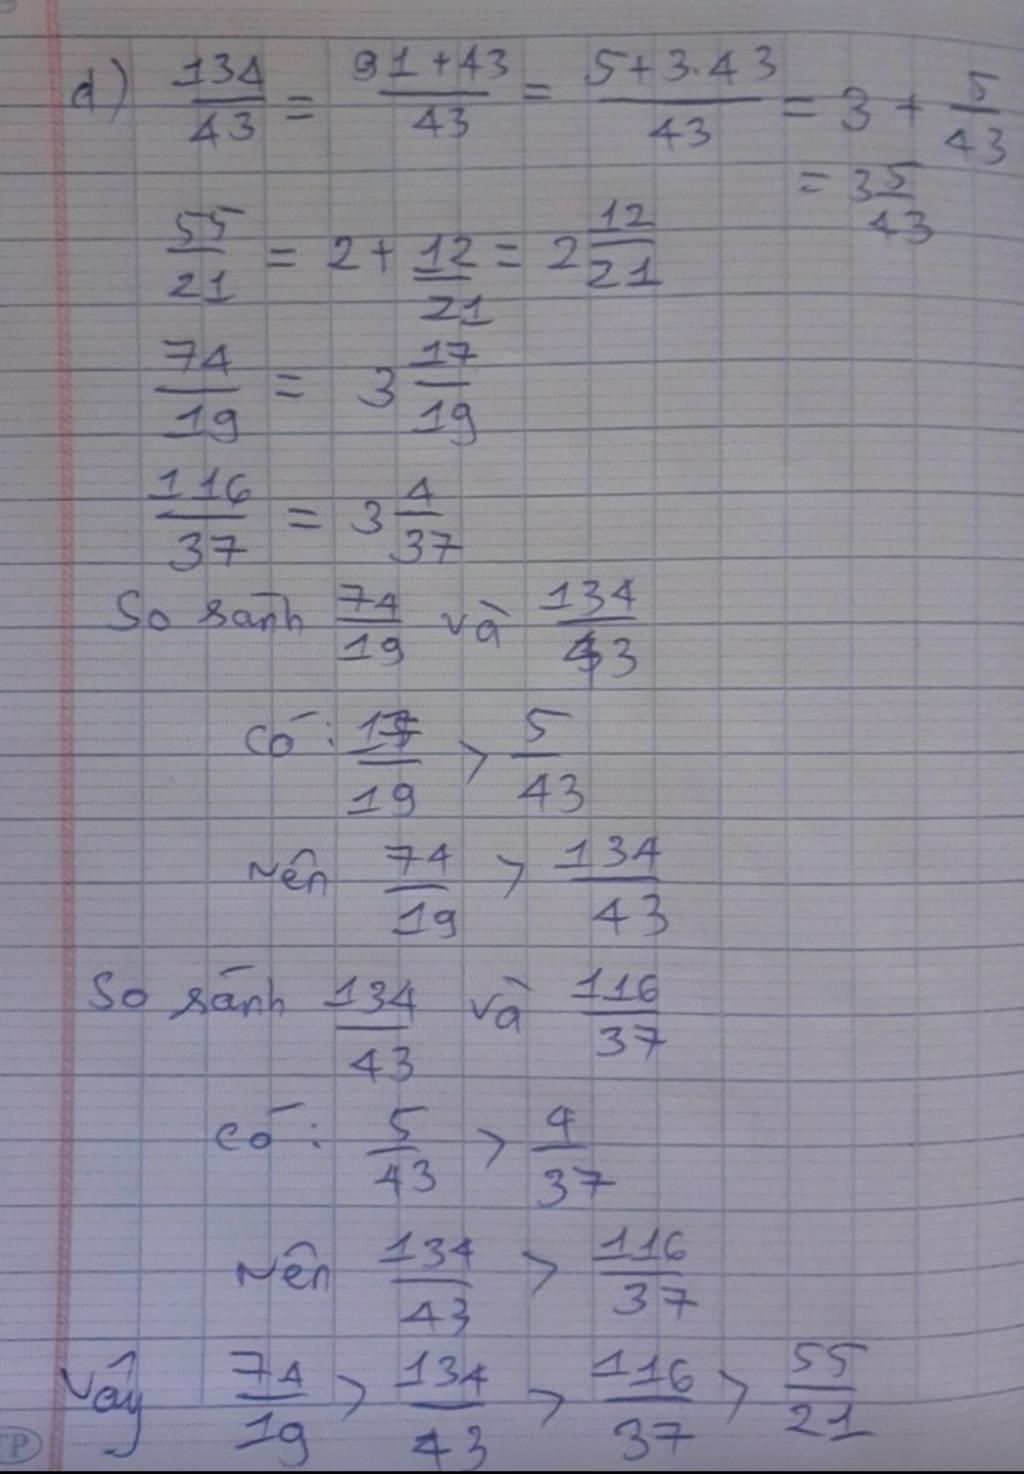 d) 134/43 = 91+43/43 = 5+3.43/43 = 3 + 5/43
= 3 5/43
55/21 = 2 + 12/21 = 2 12/21
74/19 = 3 17/19
116/37 = 3 4/37
So sánh 74/19 và 134/43
Có: 17/19 > 5/43
Nên 74/19 > 134/43
So sánh 134/43 và 116/37
Có: 5/43 > 4/37
Nên 134/43 > 116/37
Vậy 74/19 > 134/43 > 116/37 > 55/21
TP